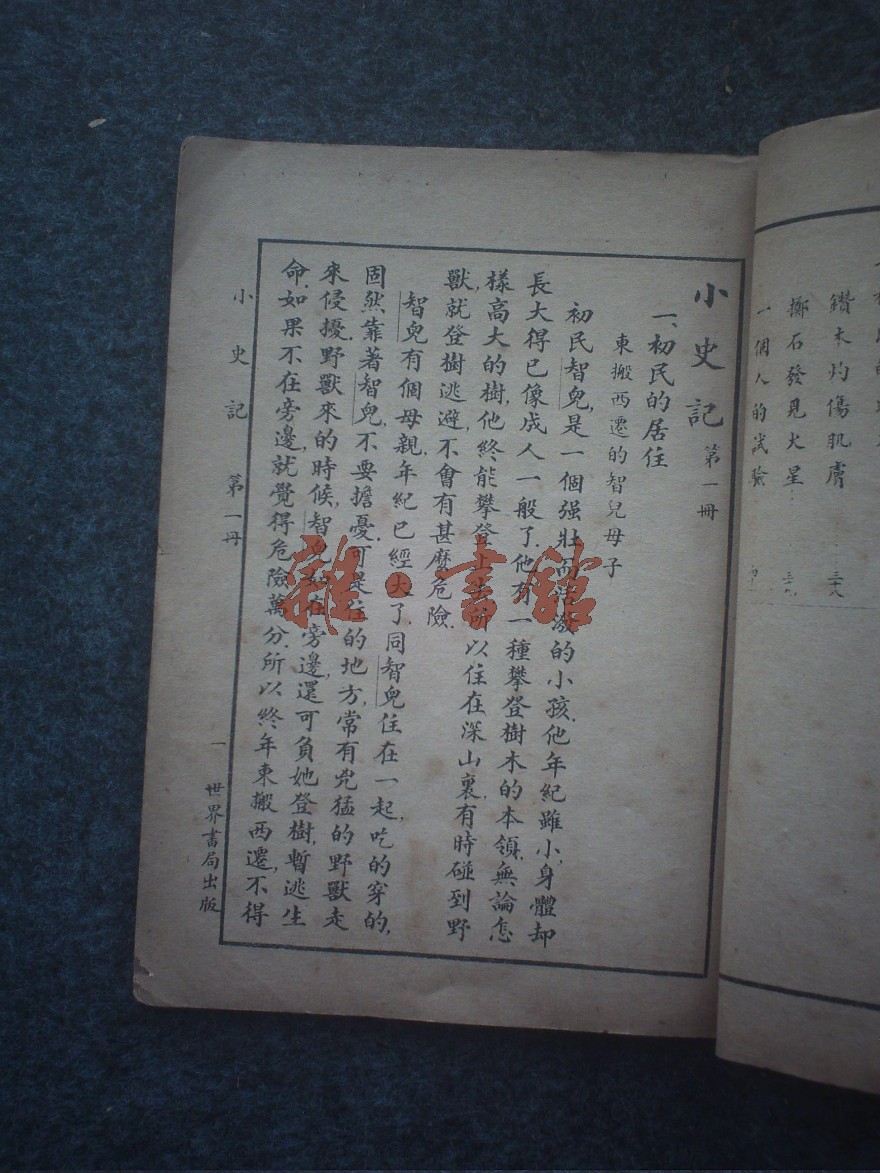 鑽木灼傷肌膚……三十八
擲石發見火星……三十九
一個人的試驗
小史記 第一冊
一、初民的居住
東搬西遷的智兒母子
初民智兒,是一個强壯而活潑的小孩.他年紀雖小,身體却
長大得已像成人一般了.他有一種攀登樹木的本領,無論怎
樣高大的樹,他終能攀登上去.所以住在深山裏,有時碰到野
獸,就登樹逃避,不會有甚麼危險.
智兒有個母親,年紀已經大了,同智兒住在一起,吃的穿的,
固然靠著智兒,不要擔憂,可是住的地方,常有兇猛的野獸走
來侵擾.野獸來的時候,智兒如在旁邊,還可負她登樹,暫逃生
命,如果不在旁邊,就覺得危險萬分.所以終年東搬西遷,不得
小史記 第一冊
一 世界書局出版
雜·書館